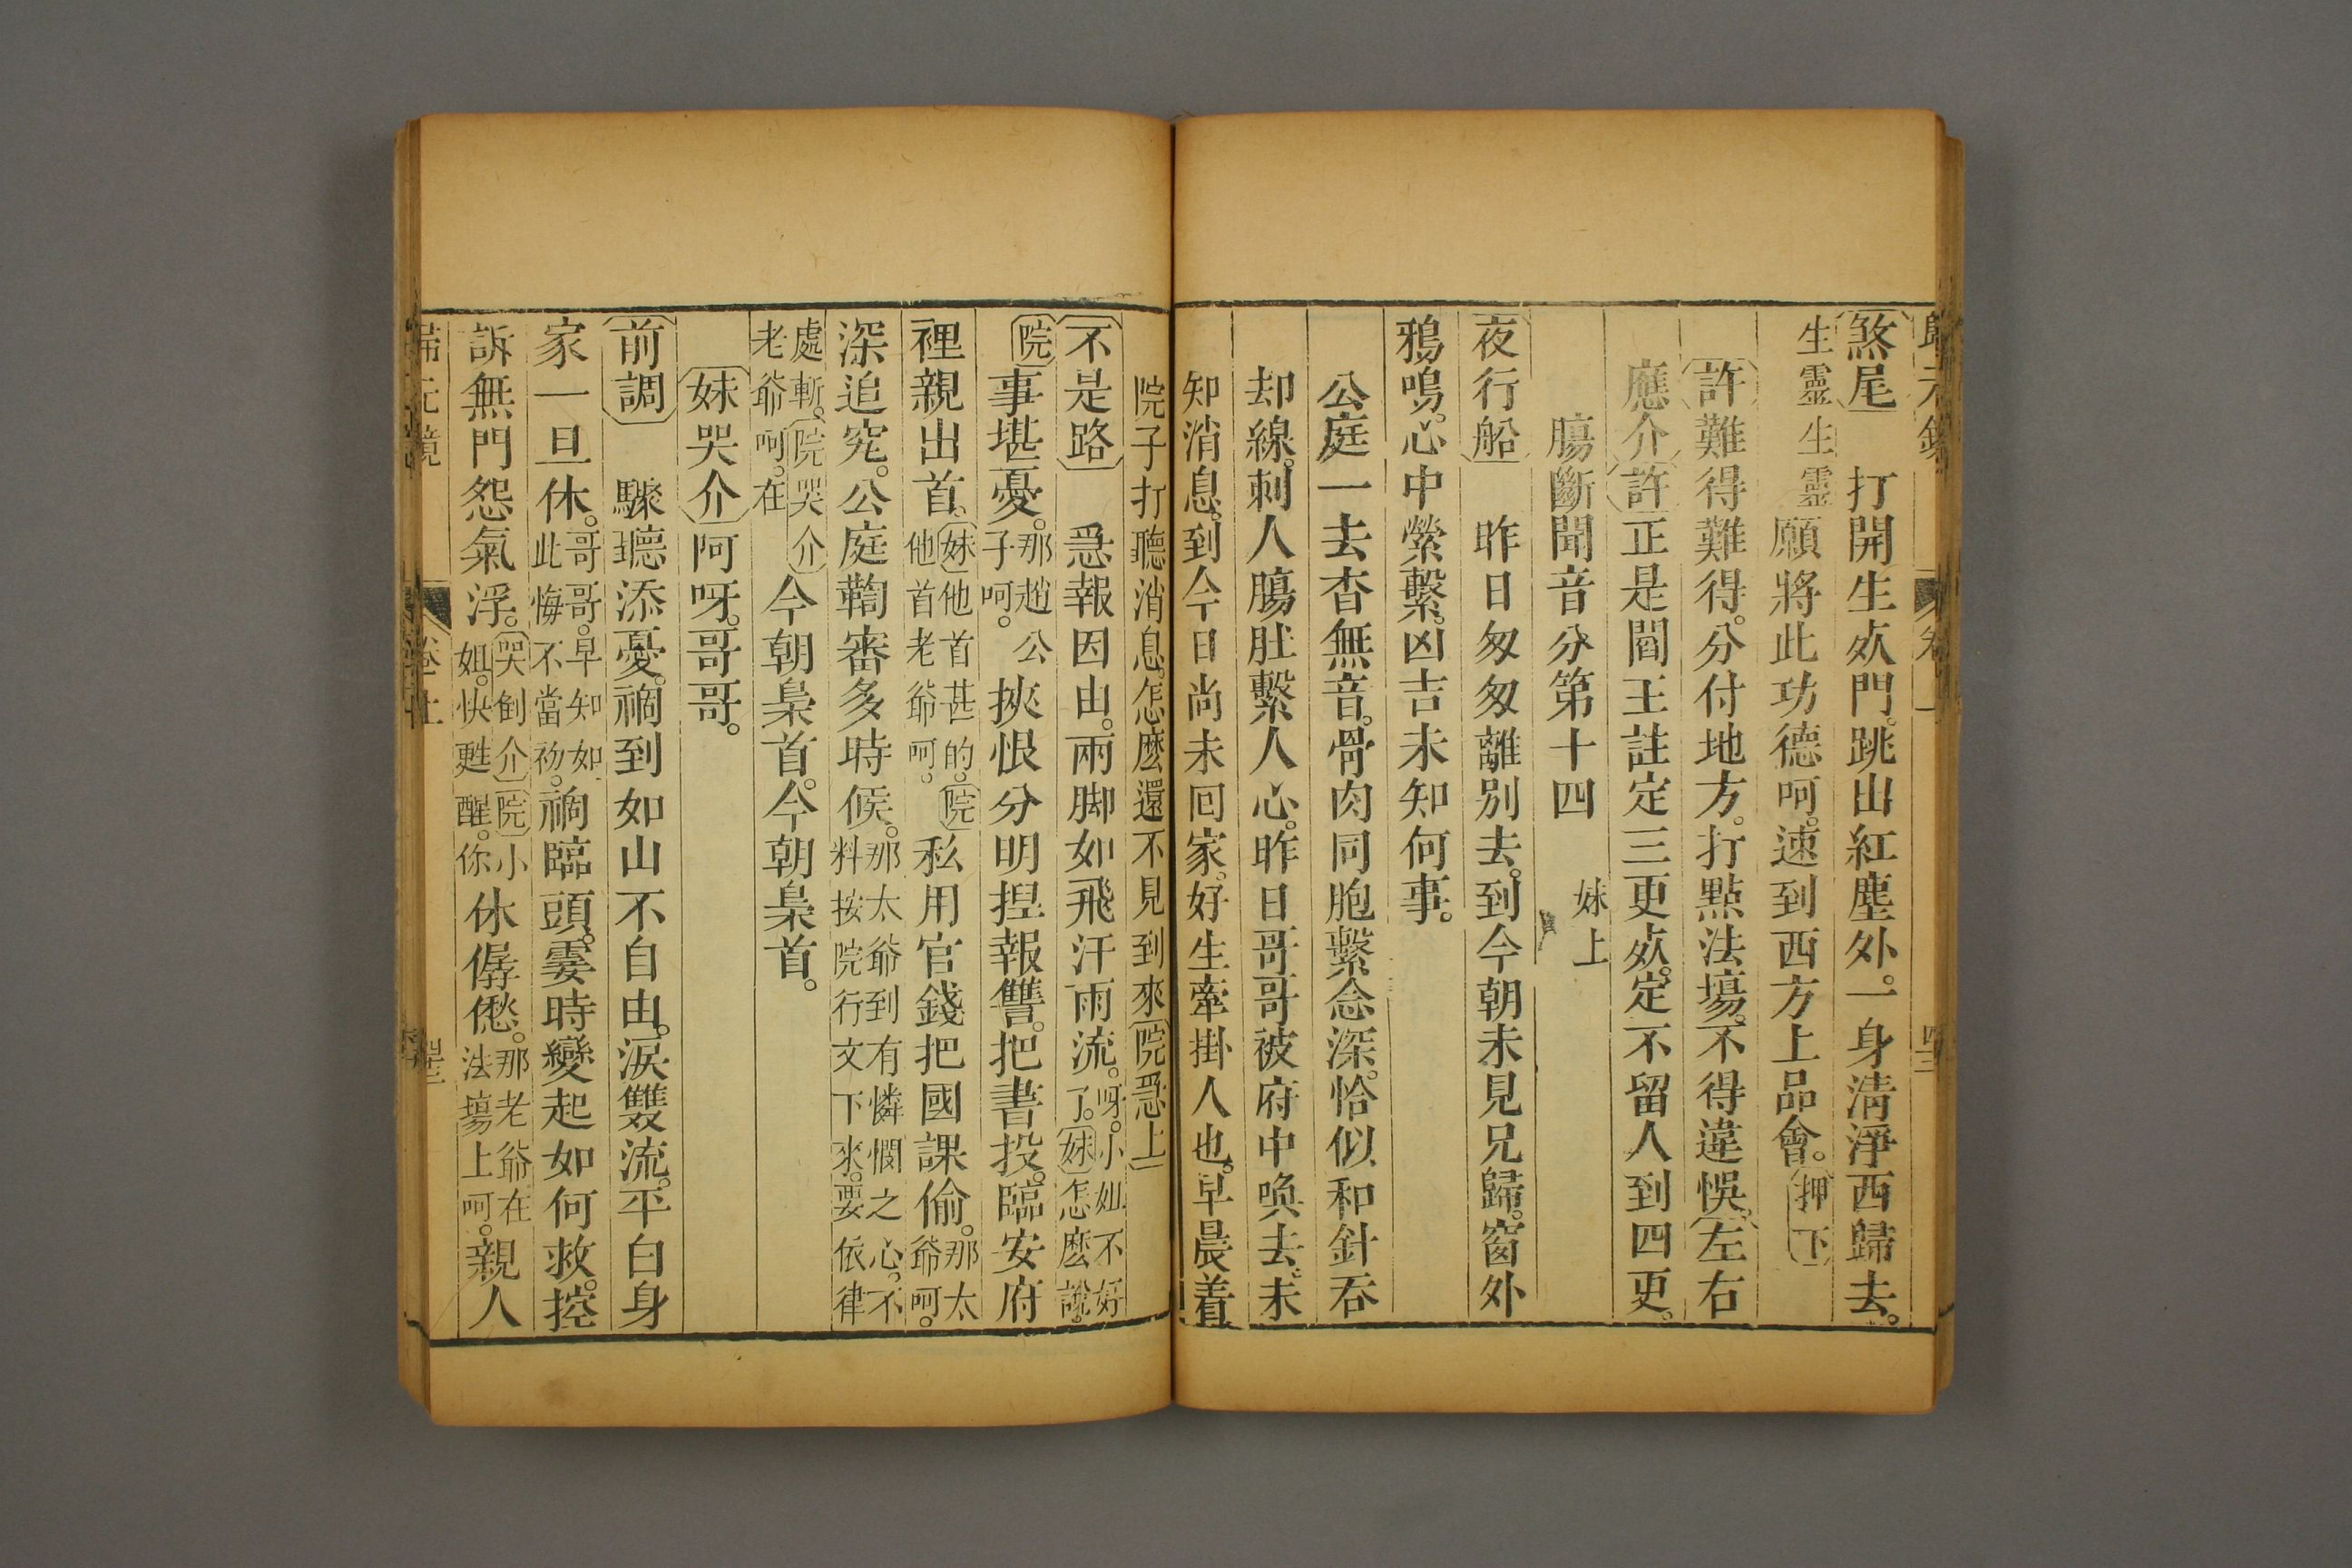 煞尾　打開生死門。跳出紅塵外。一身淸淨西歸去。
生靈生靈願將此功德呵。速到西方上品會。押下
許難得難得。分付地方。打點法塲。不得違悞。左右
應介許正是閻王註定三更死。定不留人到四更。
腸斷聞音分第十四　妹上
夜行船　昨日匆匆離別去。到今朝未見兄歸。窗外
鴉鳴。心中縈繫。凶吉未知何事。
公庭一去杳無音。骨肉同胞繫念深。恰似和針吞
却線。刺人腸肚繫人心。昨日哥哥被府中喚去。未
知消息。到今日尚未回家。好生牽掛人也。早晨着
院子打聽消息。怎麽還不見到來院急上
不是路　急報因由。兩脚如飛汗雨流。呀。小姐不好
了。妹怎麽說。
院事堪憂。那趙公
子呵。挾恨分明揑報讐。把書投。臨安府
裡親出首。妹他首甚的。院
他首老爺呵。私用官錢把國課偷。那太
爺呵。
深追究。公庭鞫審多時候。那太爺到有憐憫之心。不
料按院行文下來。要依律
處斬。院哭介
老爺呵。在今朝梟首。今朝梟首。
妹哭介阿呀。哥哥。
前調　驟聽添憂。禍到如山不自由。淚雙流。平白身
家一旦休。哥哥。早知如
此悔不當初。禍臨頭。霎時變起如何救。控
訴無門怨氣浮。哭倒介院小
姐。快甦醒。你休僝僽。那老爺在
法塲上呵。親人
歸元鏡　卷上